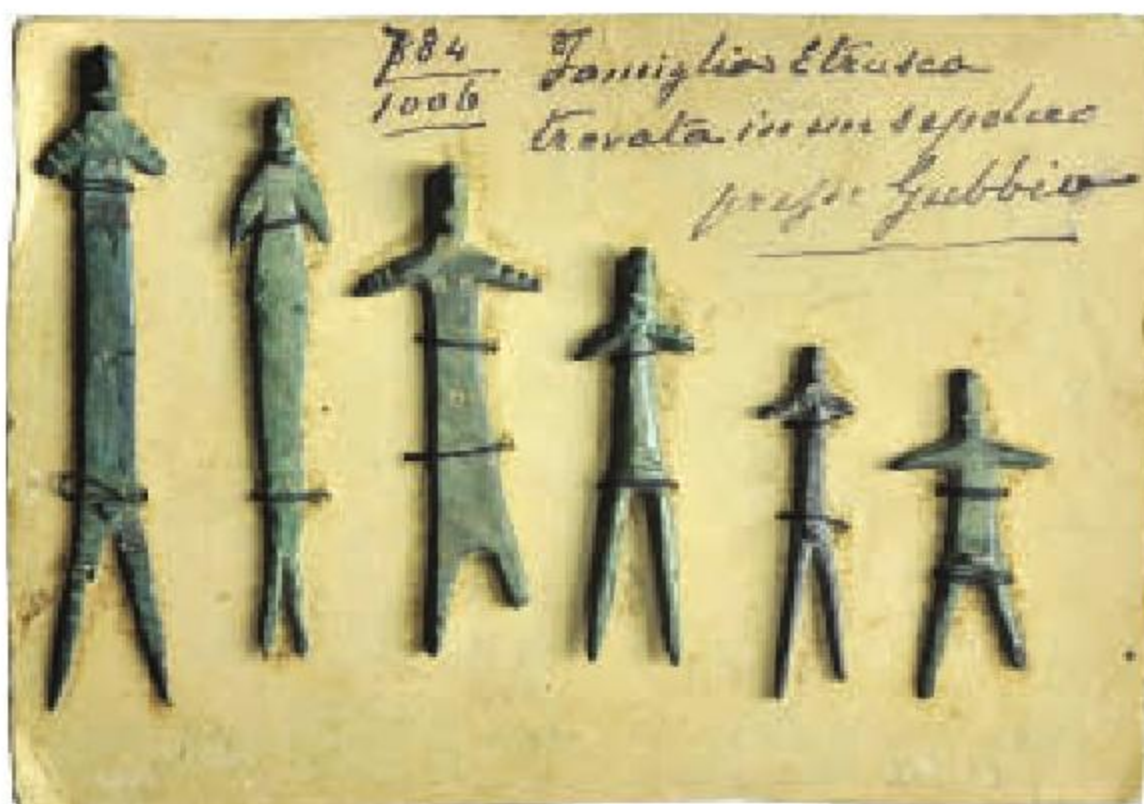 784
1006
Famiglia Etrusca
trovata in un sepolcro
presso Gubbio